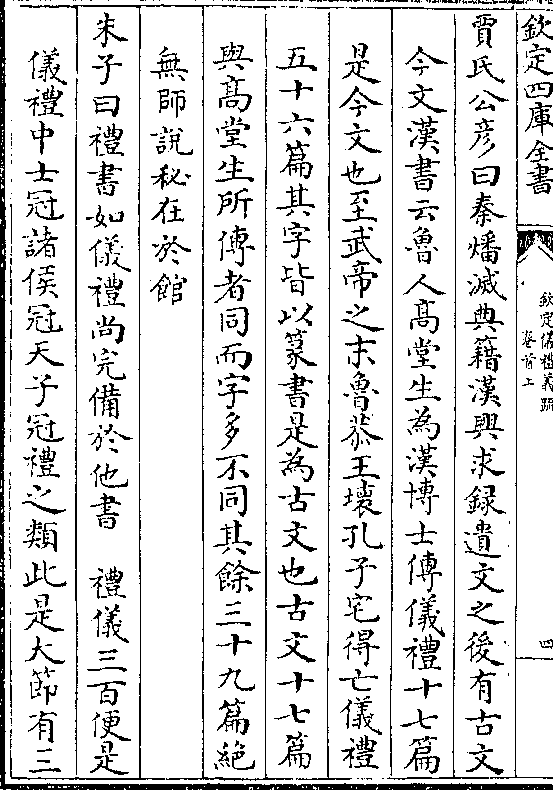 欽定四庫全書
欽定儀禮義疏
卷首上
四
賈氏公彦曰秦燔滅典籍漢興求録遺文之後有古文
今文漢書云魯人髙堂生為漢博士傳儀禮十七篇
是今文也至武帝之末魯恭王壞孔子宅得亡儀禮
五十六篇其字皆以篆書是為古文也古文十七篇
與髙堂生所傳者同而字多不同其餘三十九篇絶
無師說秘在於館
朱子曰禮書如儀禮尚完備於他書　禮儀三百便是
儀禮中士冠諸侯冠天子冠禮之類此是大節有三